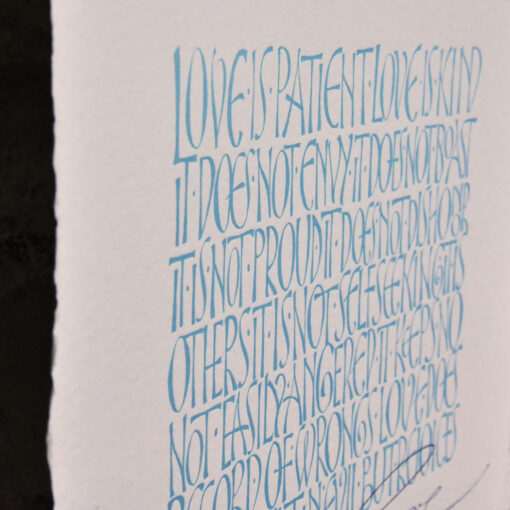 LOVE·IS·PATIENT·LOVE·IS·KIND
IT·DOES·NOT·ENVY·IT·DOES·NOT·BOAST
IT·IS·NOT·PROUD·IT·DOES·NOT·DISHONOR
OTHERS·IT·IS·NOT·SELF·SEEKING·IT·IS
NOT·EASILY·ANGERED·IT·KEEPS·NO
RECORD·OF·WRONGS·LOVE·DOES
BUT·REJOICES